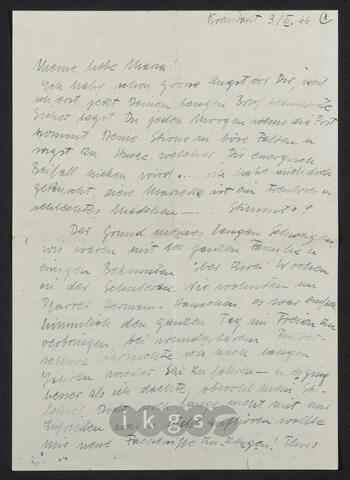 Kronstadt 3/II. 44. 1
Meine liebe Maria!
Ich habe schon grosse Angst vor Dir, weil
ich erst jetzt Deinen langen Brief beantworte
Sicher sagst Du jeden Morgen wenn die Post
kommt Deine Stirne in böse Falten u
sagst zu Hugo, welcher Dir energisch
Beifall nicken wird.... ich habe mich doch
getäuscht, diese Marieke ist ein treuloses u
schlechtes Mädchen —. Stimmt's?
Der Grund meines langen Schweigens
wir waren mit der ganzen Familie u
einigen Bekannten über zwei Wochen
in der Schulerau. Wir wohnten im
Pfarrer Hermann-Häuschen. es war einfach
himmlisch den ganzen Tag im Freien zu
verbringen, bei wunderbarem Pulver-
schnee versuchte ich nach langen
Jahren wieder Ski zu fahren — u es ging
besser als ich dachte, obwohl mein Ski-
lehrer, nicht mit mir
zufrieden war aufhören wollte
mir neue zu zeigen!
kgs